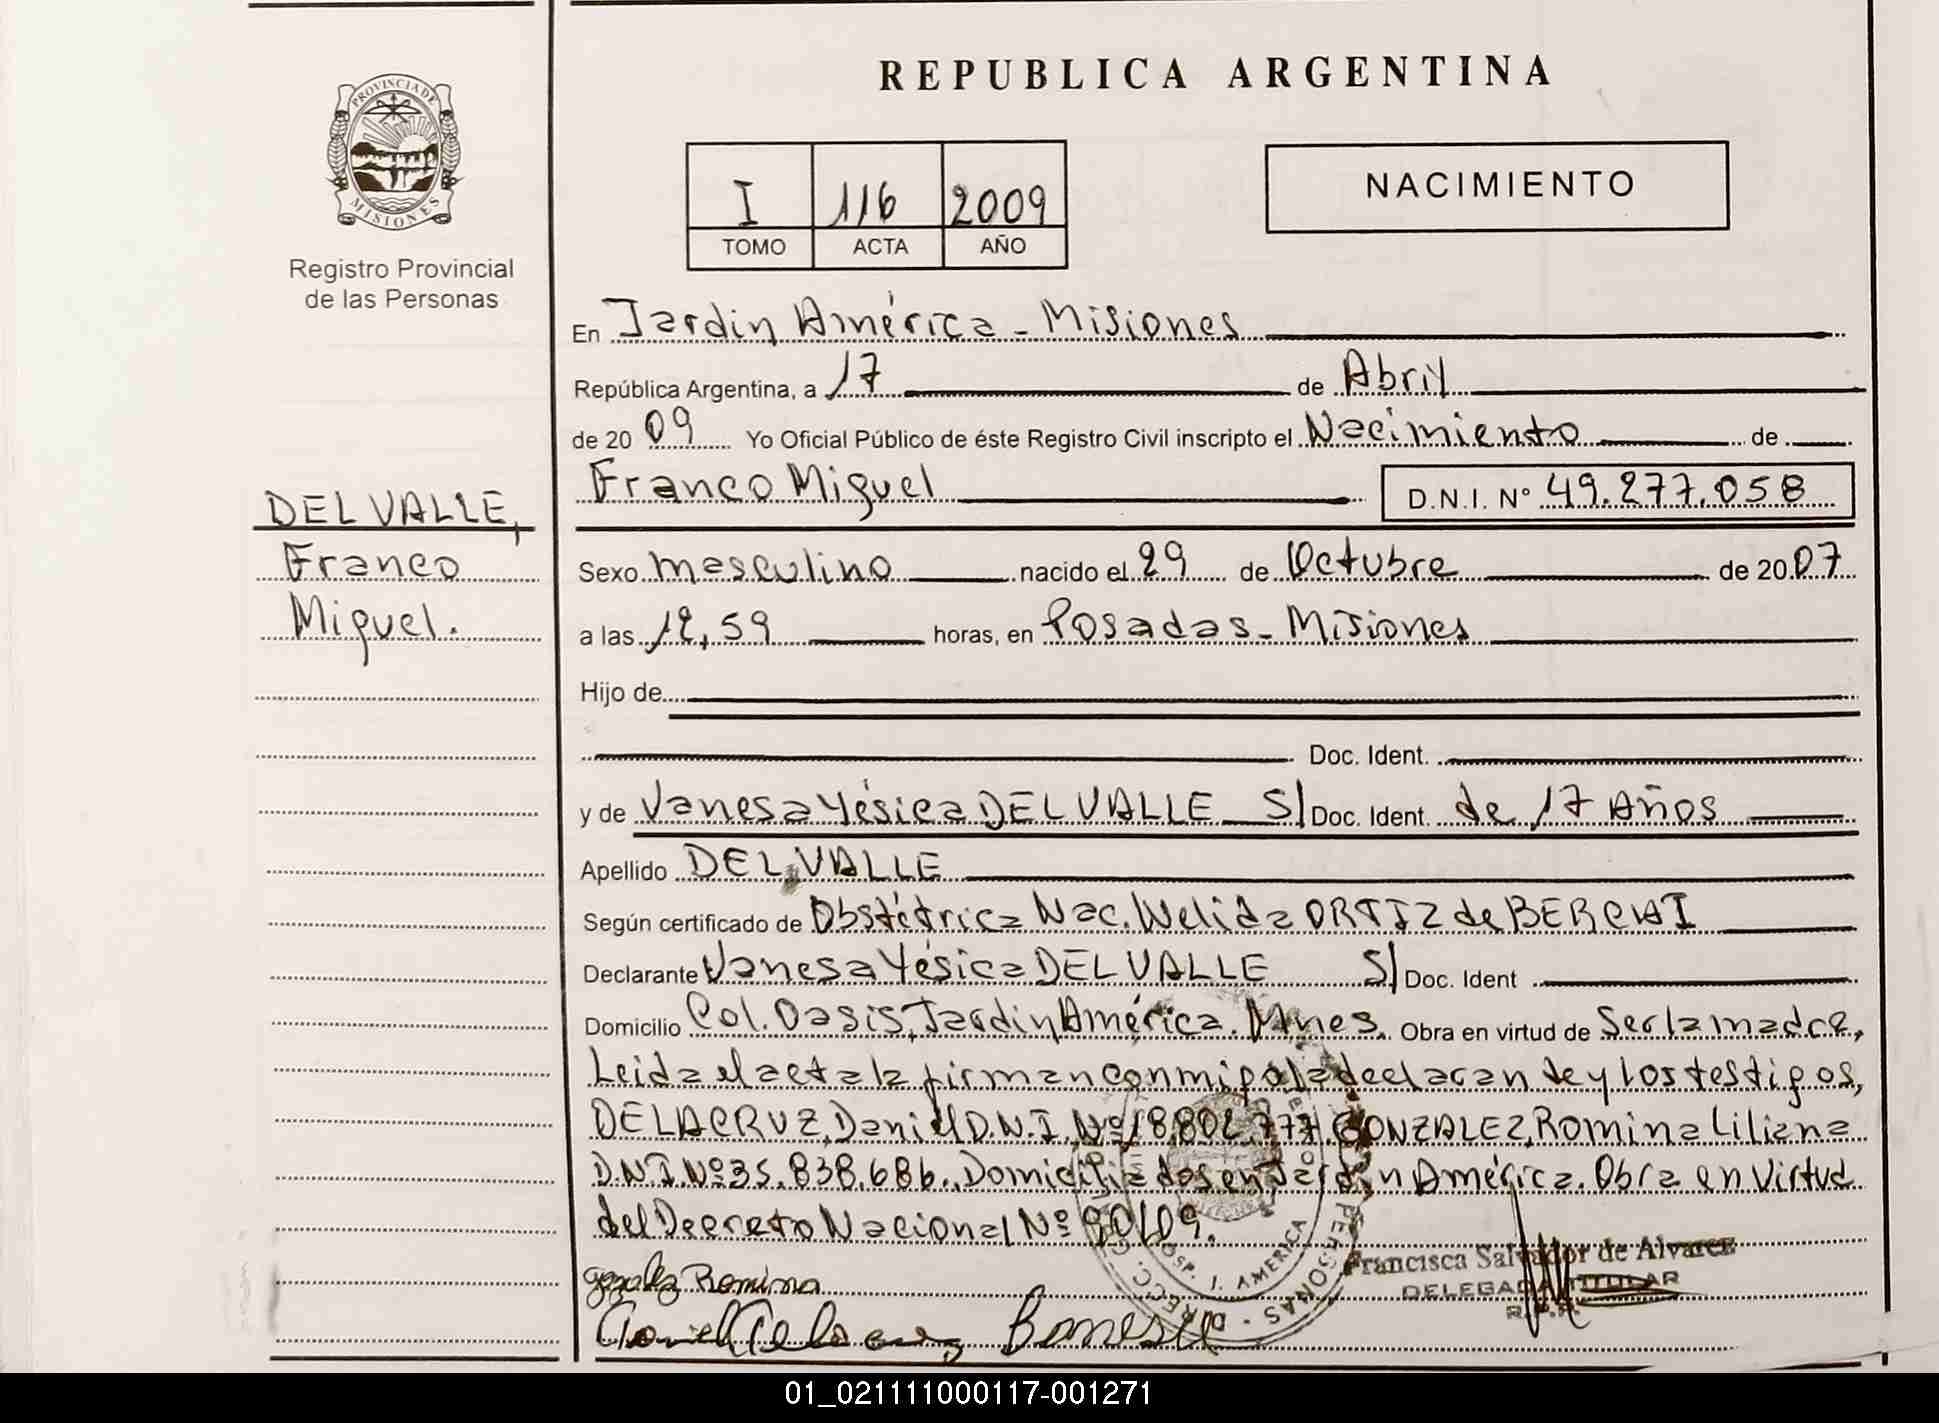 REPUBLICA ARGENTINA
PROVINCIA DE MISIONES
Registro Provincial
de las Personas
I 116 2009
TOMO ACTA AÑO
NACIMIENTO
En Jardin América - Misiones
República Argentina, a 17 de Abril
de 20 09 Yo Oficial Público de éste Registro Civil inscripto el Nacimiento de
Franco Miguel D.N.I. Nº 49.277.058
DEL VALLE,
Franco
Miguel.
Sexo masculino nacido el 29 de Octubre de 20 07
a las 12,59 horas, en Posadas - Misiones
Hijo de
Doc. Ident.
y de Vanesa Yésica DEL VALLE S/ Doc. Ident. de 17 Años
Apellido DEL VALLE
Según certificado de Obstétrica Nac. Welida ORTIZ de
Declarante Vanesa Yésica DEL VALLE S/ Doc. Ident
Domicilio Col. Oasis, Jardin América. Mnes. Obra en virtud de Ser la madre,
Leida el acta la firman conmigo la declarante y los testigos,
DELACRUZ, Daniel D.N.I. Nº 18.802.777. GONZALEZ, Romina Liliana
D.N.I. Nº 35.838.686., Domiciliados en Jardin América. Obra en Virtud
del Decreto Nacional Nº 90/09.
Romina
Francisca Salvador de Alvarez
DELEGADA TITULAR
R.P.P.
01_021111000117-001271